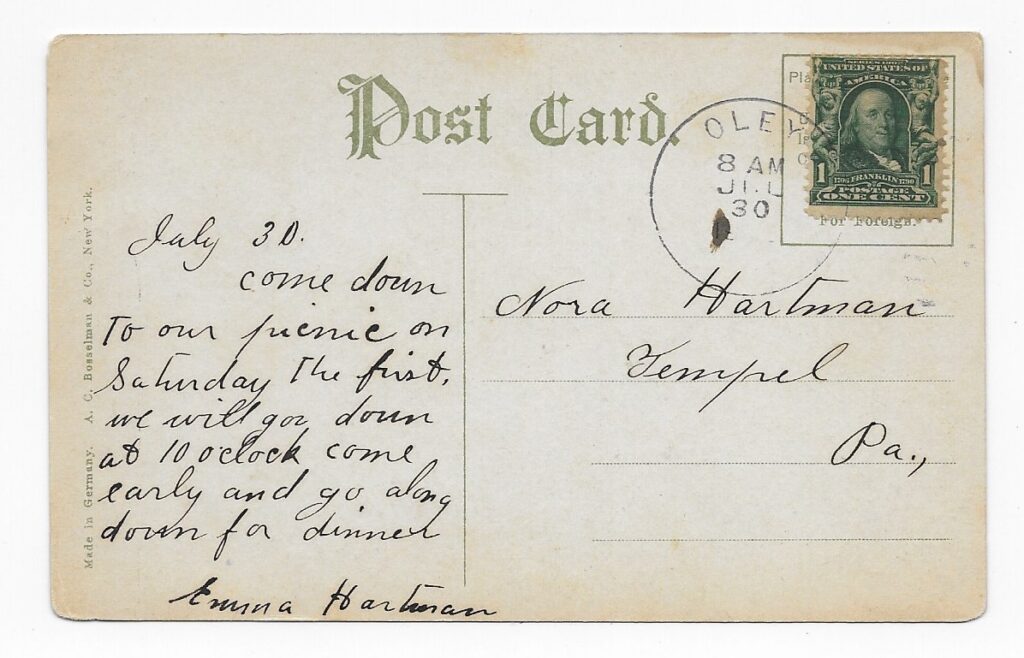 Post Card.
OLEY
8 AM
JUL
30
SERIES 1902
UNITED STATES OF
AMERICA
1 1706 FRANKLIN 1790 1
POSTAGE
ONE CENT
For Foreign.
Made in Germany. A. C. Bosselman & Co., New York.
July 30.
come down
to our picnic on
Saturday the first.
we will go down
at 10 oclock come
early and go along
down for dinner
Emma Hartman
Nora Hartman
Tempel
Pa.,